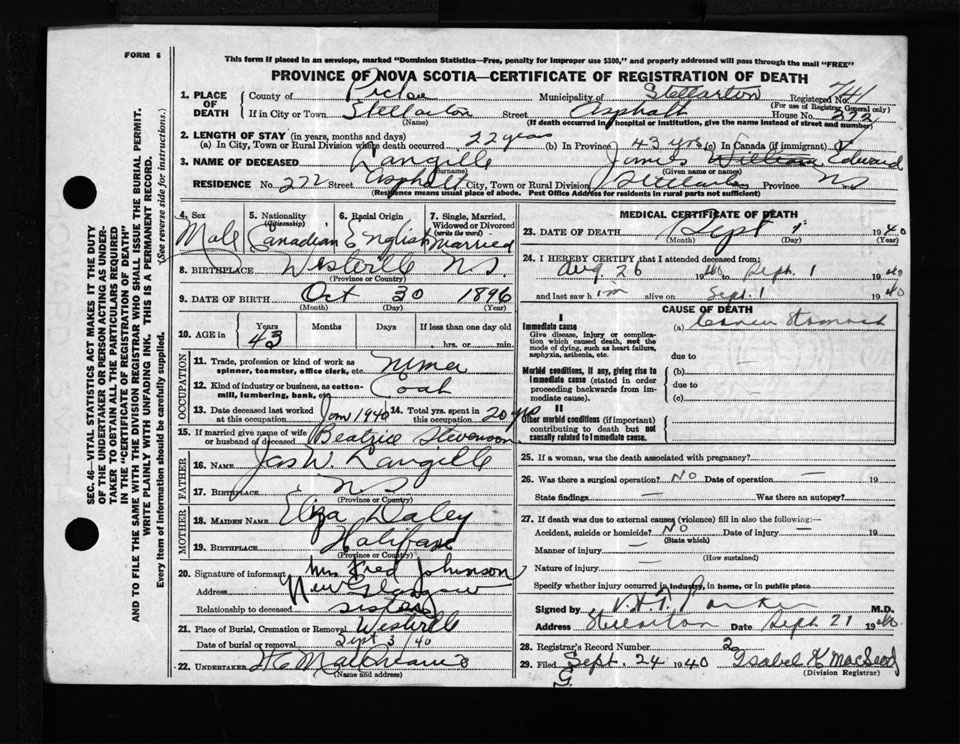 FORM 6
This form if placed in an envelope, marked "Dominion Statistics—Free, penalty for improper use $300," and properly addressed will pass through the mail "FREE"
PROVINCE OF NOVA SCOTIA—CERTIFICATE OF REGISTRATION OF DEATH
SEC. 46—VITAL STATISTICS ACT MAKES IT THE DUTY
OF THE UNDERTAKER OR PERSON ACTING AS UNDER-
TAKER TO OBTAIN ALL THE PARTICULARS REQUIRED
IN THE "CERTIFICATE OF REGISTRATION OF DEATH"
AND TO FILE THE SAME WITH THE DIVISION REGISTRAR WHO SHALL ISSUE THE BURIAL PERMIT.
WRITE PLAINLY WITH UNFADING INK. THIS IS A PERMANENT RECORD.
Every item of information should be carefully supplied. (See reverse side for instructions.)
1. PLACE OF DEATH County of Pictou Municipality of Stellarton Registered No. 741
(For use of Registrar General only)
If in City or Town Stellarton Street Asphalt House No. 272
(Name) (If death occurred in hospital or institution, give the name instead of street and number)
2. LENGTH OF STAY (in years, months and days)
(a) In City, Town or Rural Division where death occurred 22 years (b) In Province 43 yrs (c) In Canada (if immigrant)
3. NAME OF DECEASED Langille James William Edward
(Surname) (Given name or names)
RESIDENCE No. 272 Street Asphalt City, Town or Rural Division Stellarton Province NS
(Residence means usual place of abode. Post Office Address for residents in rural parts not sufficient)
4. Sex Male
5. Nationality (Citizenship) Canadian
6. Racial Origin English
7. Single, Married, Widowed or Divorced (write the word) Married
8. BIRTHPLACE Westville N.S.
(Province or Country)
9. DATE OF BIRTH Oct 30 1896
(Month) (Day) (Year)
10. AGE in Years 43 Months Days If less than one day old
hrs. or min.
OCCUPATION
11. Trade, profession or kind of work as spinner, teamster, office clerk, etc.
12. Kind of industry or business, as cotton-mill, lumbering, bank, etc. Coal
13. Date deceased last worked at this occupation Jan 1940 14. Total yrs. spent in this occupation 20 yrs
15. If married give name of wife or husband of deceased Beatrice Stevenson
FATHER
16. NAME Jas W. Langille
17. BIRTHPLACE N S
(Province or Country)
MOTHER
18. MAIDEN NAME Eliza Daley
19. BIRTHPLACE Halifax
(Province or Country)
20. Signature of informant Mrs Fred Johnson
Address New Glasgow
Relationship to deceased sister
21. Place of Burial, Cremation or Removal Westville
Date of burial or removal Sept 3 / 40
22. UNDERTAKER
(Name and address)
MEDICAL CERTIFICATE OF DEATH
23. DATE OF DEATH Sept 1 1940
(Month) (Day) (Year)
24. I HEREBY CERTIFY that I attended deceased from:
Aug. 26 40 to Sept. 1 1940
and last saw him alive on Sept. 1 1940
CAUSE OF DEATH
I
Immediate cause (a) Cancer Stomach
Give disease, injury or complication which caused death, not the mode of dying, such as heart failure, asphyxia, asthenia, etc.
due to —
Morbid conditions, if any, giving rise to immediate cause (stated in order proceeding backwards from immediate cause). (b)
due to —
(c)
II
Other morbid conditions (if important) contributing to death but not causally related to immediate cause.
25. If a woman, was the death associated with pregnancy?
26. Was there a surgical operation? No Date of operation — 19
State findings — Was there an autopsy?
27. If death was due to external causes (violence) fill in also the following:—
Accident, suicide or homicide? No Date of injury — 19
(State which)
Manner of injury —
(How sustained)
Nature of injury —
Specify whether injury occurred in industry, in home, or in public place
Signed by Parker M.D.
Address Stellarton Date Sept. 21 1940
28. Registrar's Record Number
29. Filed Sept. 24 1940 Isabel K MacLeod
(Division Registrar)